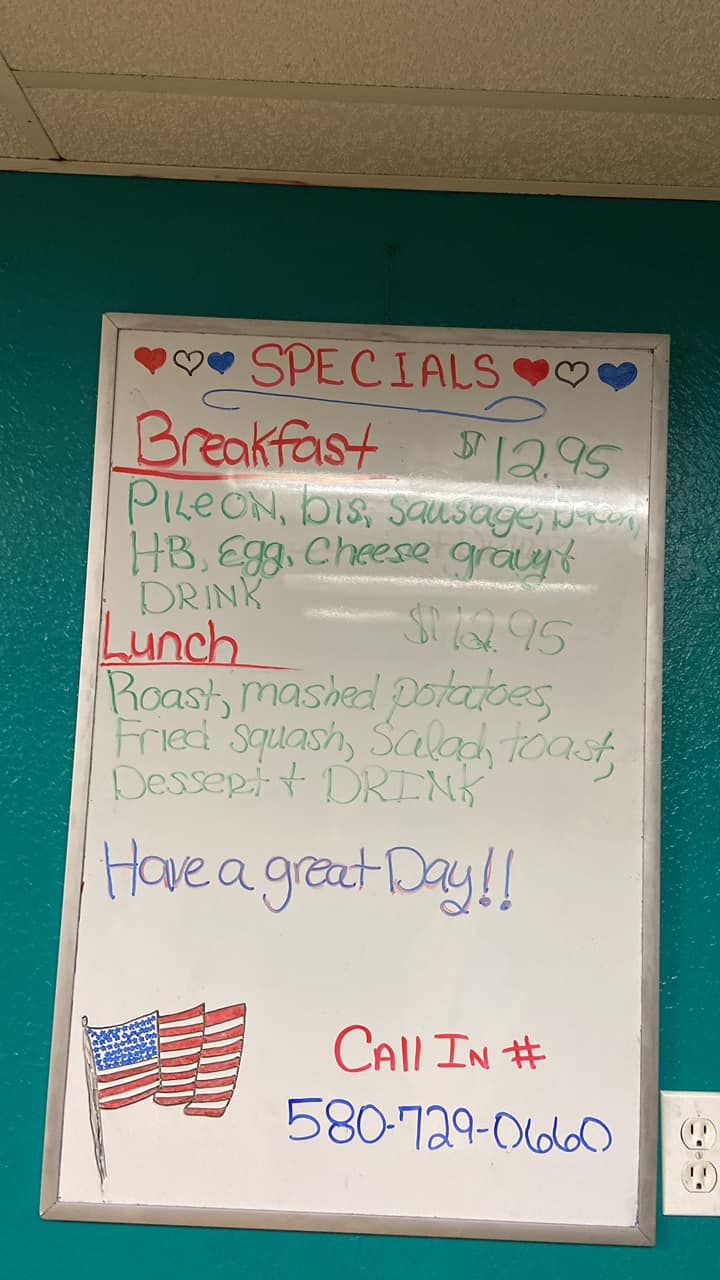 SPECIALS
Breakfast $12.95
PILeON, bis, sausage, bacon,
HB, Egg, Cheese gravy +
DRINK
Lunch $12.95
Roast, mashed potatoes,
Fried squash, Salad, toast,
Dessert + DRINK
Have a great Day!!
CAll IN #
580-729-0660